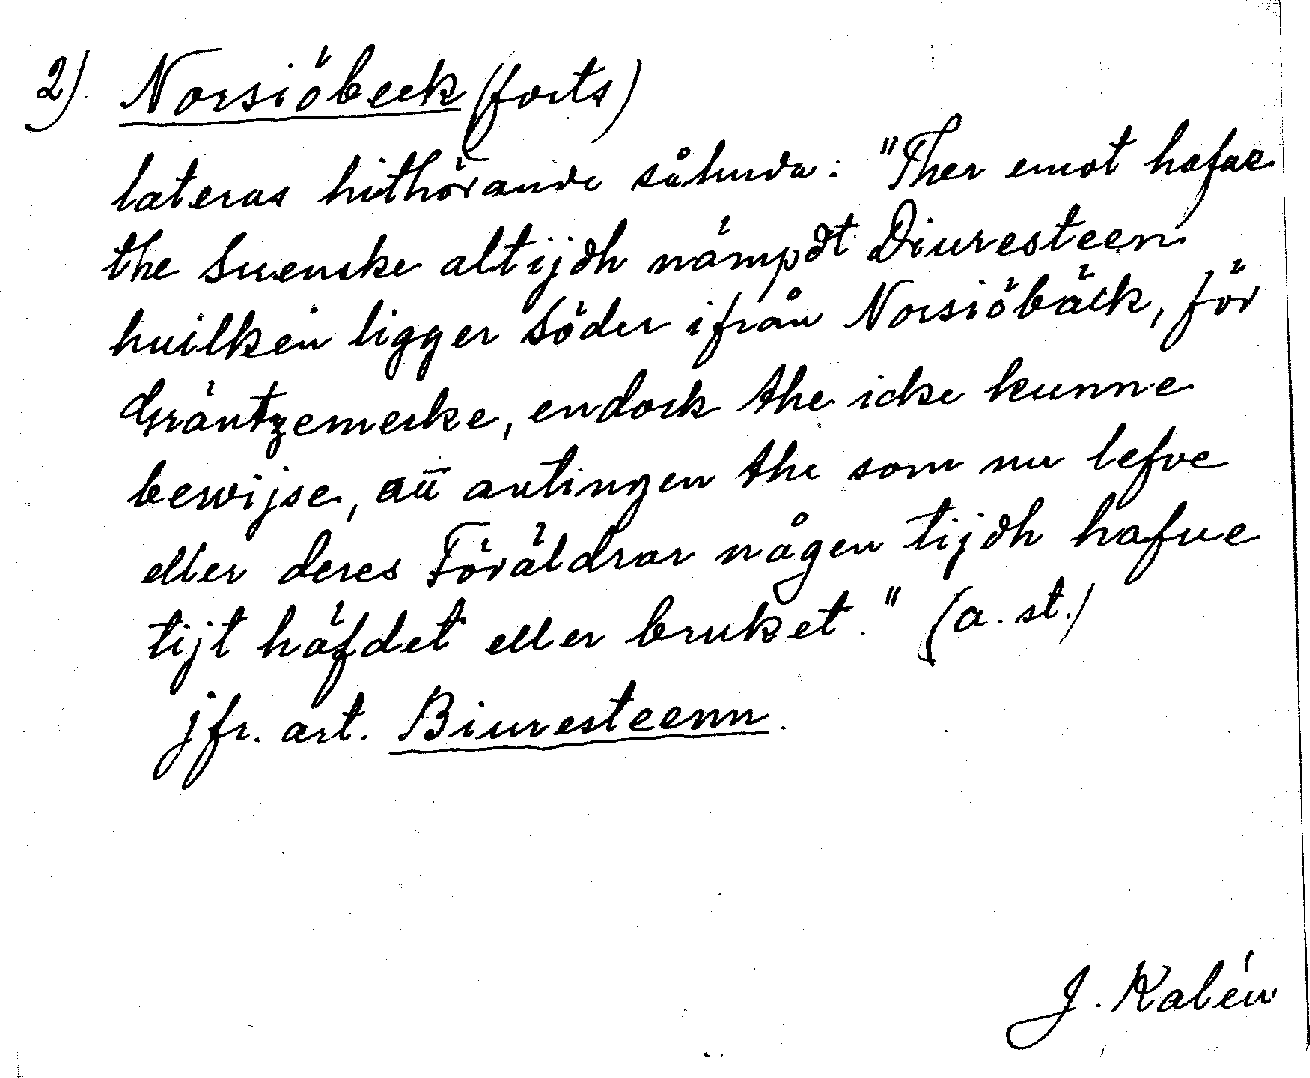 2) Norsiöbeck (forts)
lateras hithörande sålunda: "Ther emot hafue
the Suenske altijdh nämpdt Diuresteen
huilken ligger Söder ifrån Norsiöbäck, för
Gräntzemerke, endock the icke kunne
bewijse, att antingen the som nu lefve
eller deres Föräldrar någen tijdh hafue
tijt häfdet eller bruket." (a. st.)
jfr. art. Biuresteenn.
J. Kalén